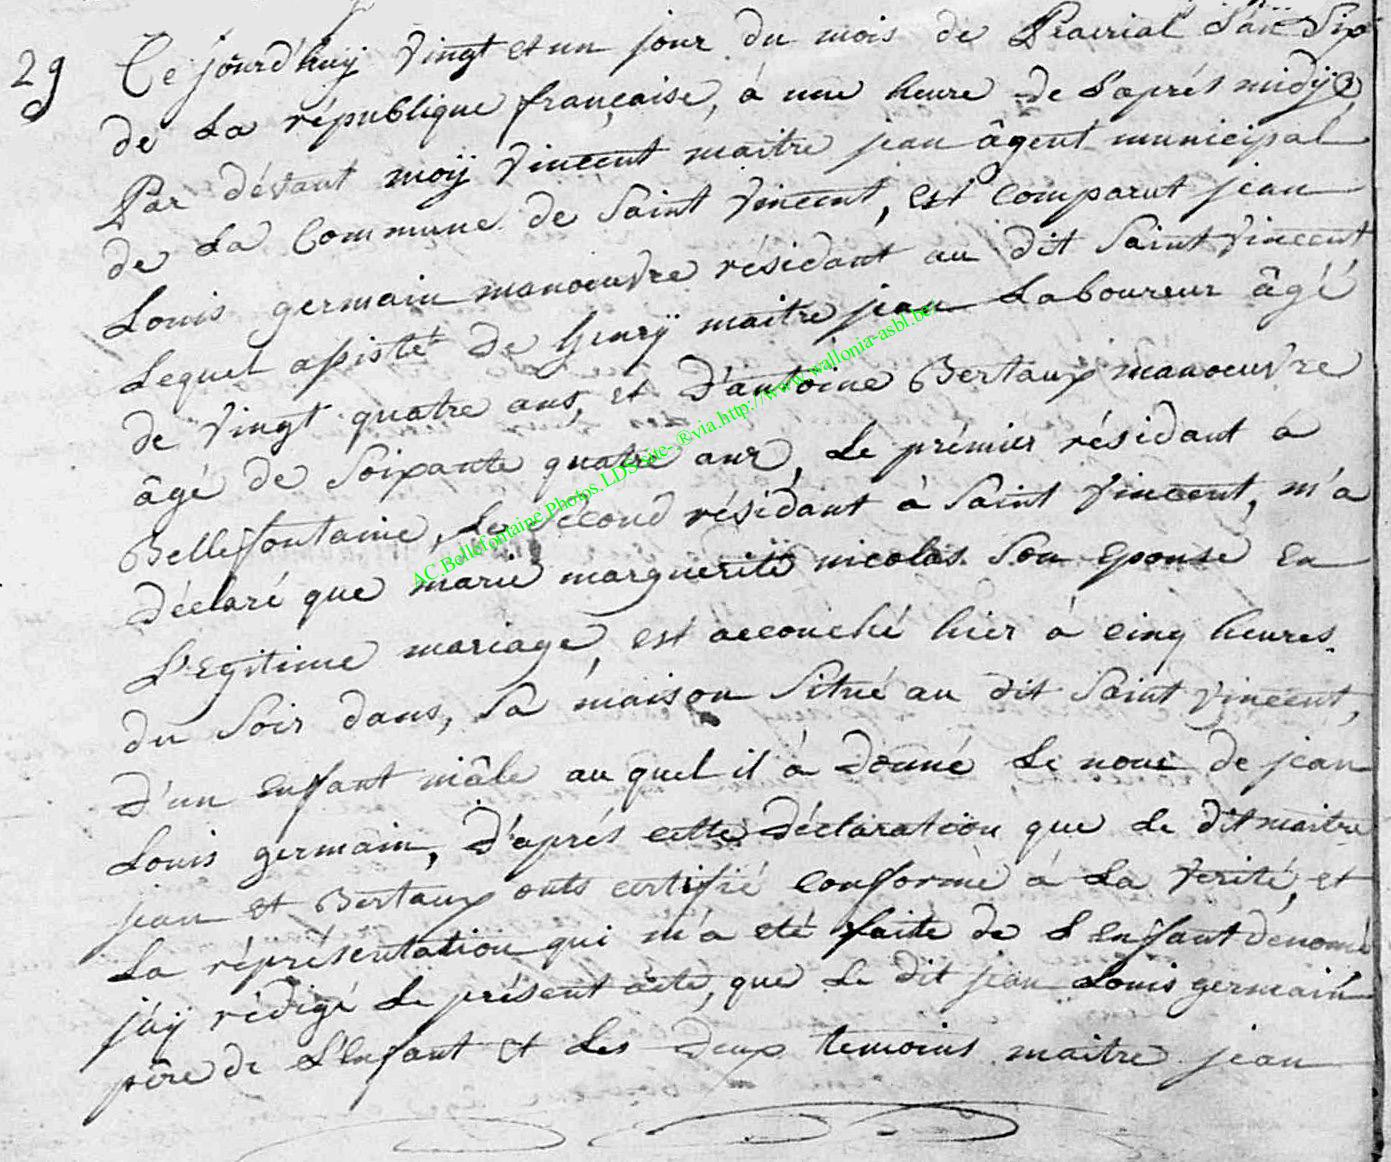 29 Ce jourd'huÿ vingt et un jour du mois de Prairial L'an Six
de La république française, á une heure de L'aprés midÿ,
Par dévant moÿ Vincent maitre jean âgent municipal
de La Commune de Saint Vincent, est Comparut jean
Louis germain manoeuvre résidant au dit Saint Vincent
Lequel assisté de henrÿ maitre jean Laboureur âgé
de Vingt quatre ans, et D'antoine Bertaux manoeuvre
âgé de Soixante quatre ans, Le prémier résidant a
Bellefontaine, Le Sécond résidant à Saint Vincent, m'a
Déclaré que marie marguerite nicolas Son Epouse En
L'Egitime mariage, est accouché hier á cinq heures
du Soir dans, Sa maison Situé au dit Saint Vincent,
D'un Enfant mâle au quel il à Donné Le nom de jean
Louis germain, D'aprés cette Déclaration que Le dit maitre
jean et Bertaux onts certifié Conforme á La Verité, et
La réprésentation qui m'a eté faite de L'enfant dénomé
j'aÿ rédigé Le présent acte, que Le dit jean Louis germain
pére de L'Enfant Et Les Deux temoins maitre jean
AC.Bellefontaine.Photos.LDS.Site-.®via.http://www.wallonia-asbl.be/